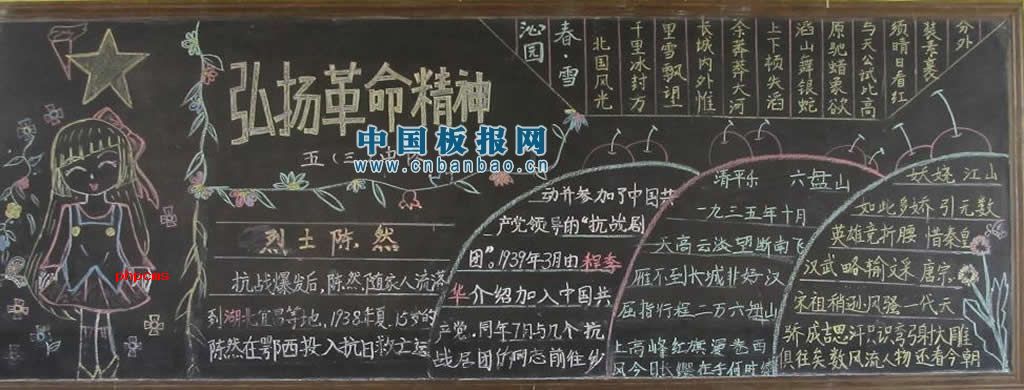 弘扬革命精神
五(三)班
中国板报网
www.cnbanbao.cn
phpcms
烈士陈然
抗战爆发后,陈然随家人流落
到湖北宜昌等地,1938年夏,15岁的
陈然在鄂西投入抗日救亡运
动并参加了中国共
产党领导的“抗战剧
团”:1939年3月由程季
华介绍加入中国共
产党.同年7月与几个抗
战居团的同志前往
沁园春·雪
北国风光
千里冰封万
里雪飘望
长城内外惟
余莽莽大河
上下顿失滔
滔山舞银蛇
原驰蜡象欲
与天公试比高
须晴日看红
装素裹
分外
妖娆江山
如此多娇引无数
英雄竞折腰惜秦皇
汉武略输文采唐宗
宋祖稍逊风骚一代天
骄成吉思汗只识弯弓射大雕
俱往矣数风流人物还看今朝
清平乐 六盘山
一九三五年十月
天高云淡望断南飞
雁不到长城非好汉
屈指行程二万六盘山
上高峰红旗漫卷西
风今日长缨在手何时缚